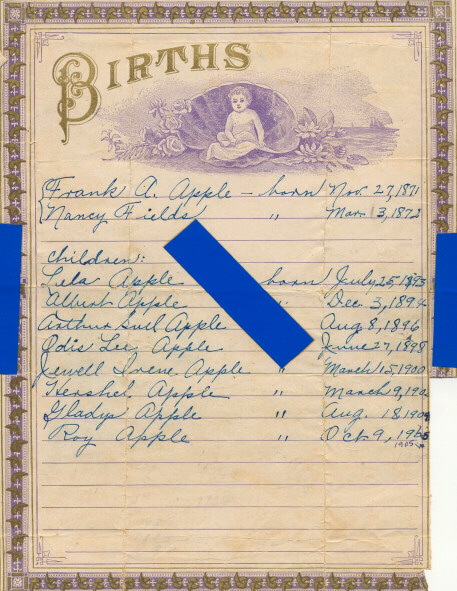 BIRTHS
Frank A. Apple – born Nov. 27, 1871
Nancy Fields " Mar. 13, 1872
Children:
Lela Apple born July 25, 1893
Albert Apple " Dec 3, 1894
Arthur Suel Apple Aug 8, 1896
Odis Lee Apple June 27, 1898
Jewell Irene Apple " March 15, 1900
Hershel Apple " March 9, 190
Gladys Apple " Aug. 18, 190
Roy Apple " Oct 9, 1905
1905